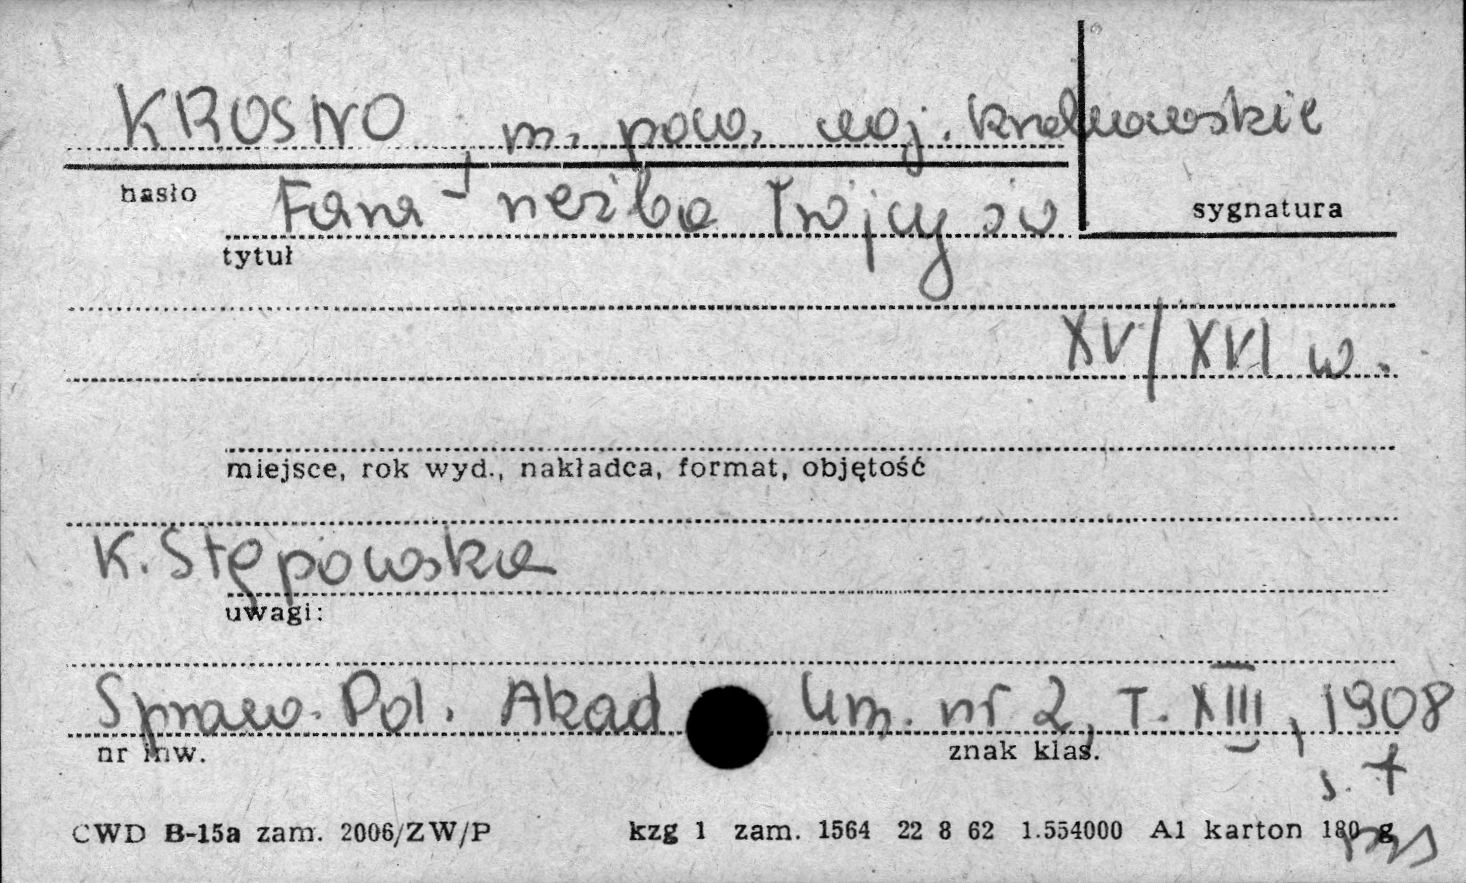 KROSNO, m. pow. woj. krakowskie
hasło
Fara - rzeźba Trójcy św
sygnatura
tytuł
XV/XVI w.
miejsce, rok wyd., nakładca, format, objętość
K. Stępowska
uwagi:
Spraw. Pol. Akad Um. nr 2, T. XIII, 1908
nr inw.
znak klas.
s. 7
CWD B-15a zam. 2006/ZW/P kzg 1 zam. 1564 22 8 62 1.554000 A1 karton 180 g
rys